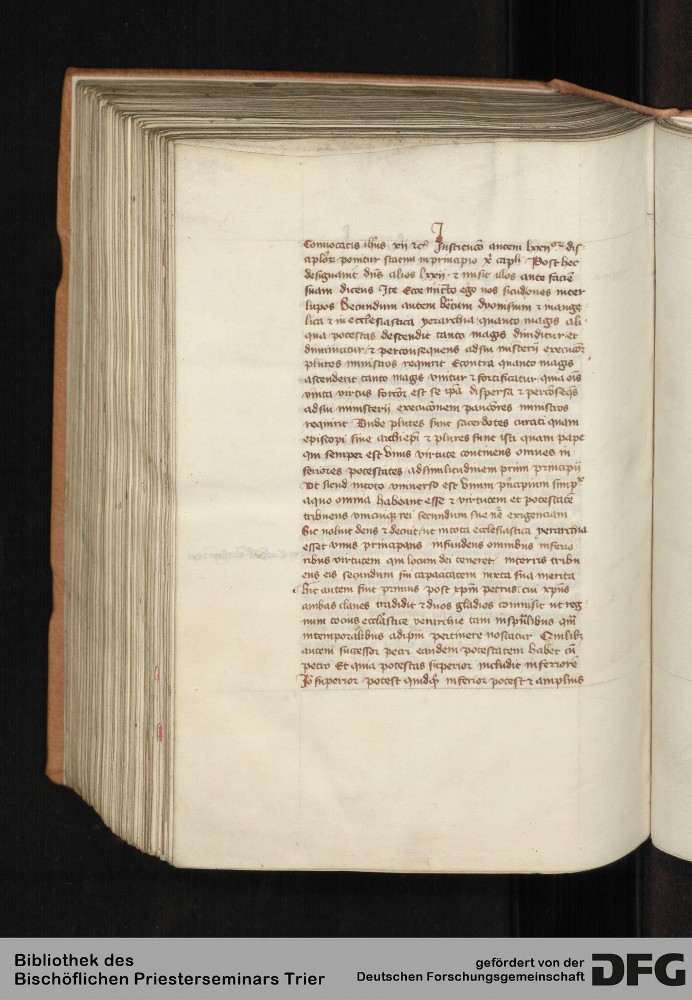 J
Conuocatis ihus xii ⁊c̄ Jnstitucō autem lxxiiorꝫ dis
ciplorꝫ ponitur statim in principio xͦ capli Post hec
designauit dn̄s alios lxxii ⁊ misit illos ante faciē
suam dicens Jte Ecce mitto ego uos sicud oues inter
lupos Secundum autem bēum dyonisium ⁊ in ange
lica ⁊ in ecclesiastica yerarchia quanto magis ali
qua potestas descendit tanto magis diuiditur et
diminuitur ⁊ per consequens ad sui misterij execucōꝫ
plures ministros requirit Econtra quanto magis
ascenderit tanto magis vnitur ⁊ fortificatur quia oīs
vnita virtus forcōr est se ipā dispersa ⁊ per cōseq̄s
ad sui ministerij execucōnem pauciōres ministros
requirit Vnde plures sunt sacerdotes curati quam
episcopi siue archiepī ⁊ plures sunt isti quam pape
qui semper est vnus virtute continens omnes in
feriores potestates ad similitudinem primi principij
Vt sicud in toto vniuerso est vnum pn̄cipium simpꝛ̄
a quo omnia habeant esse ⁊ virtutem et potestatē
tribuens vnicuiqꝫ rei secundum sue nē exigenciam
Sic voluit deus ⁊ decuit ut in tota ecclesiastica yerarchia
esset vnus principans infundens omnibus inferio
ribus virtutem qui locum dei teneret in terris tribu
ens eis secundum sui capacitatem iuxta sua merita
hic autem fuit primus post xpm̄ petrus cui xpūs
ambas claues tradidit ⁊ duos gladios commisit ut reg
num tocius eccl̄astice yerarchie tam in sp̄ualibus qm̄
in temporalibus ad ipm̄ pertinere noscatur Cuilibꝫ
autem successor petri eandem potestatem habet cū
petro Et quia potestas superior includit inferiorē
Jō superior potest quidqꝫ inferior potest ⁊ amplius
Bibliothek des
Bischöflichen Priesterseminars Trier
gefördert von der
Deutschen Forschungsgemeinschaft
DFG